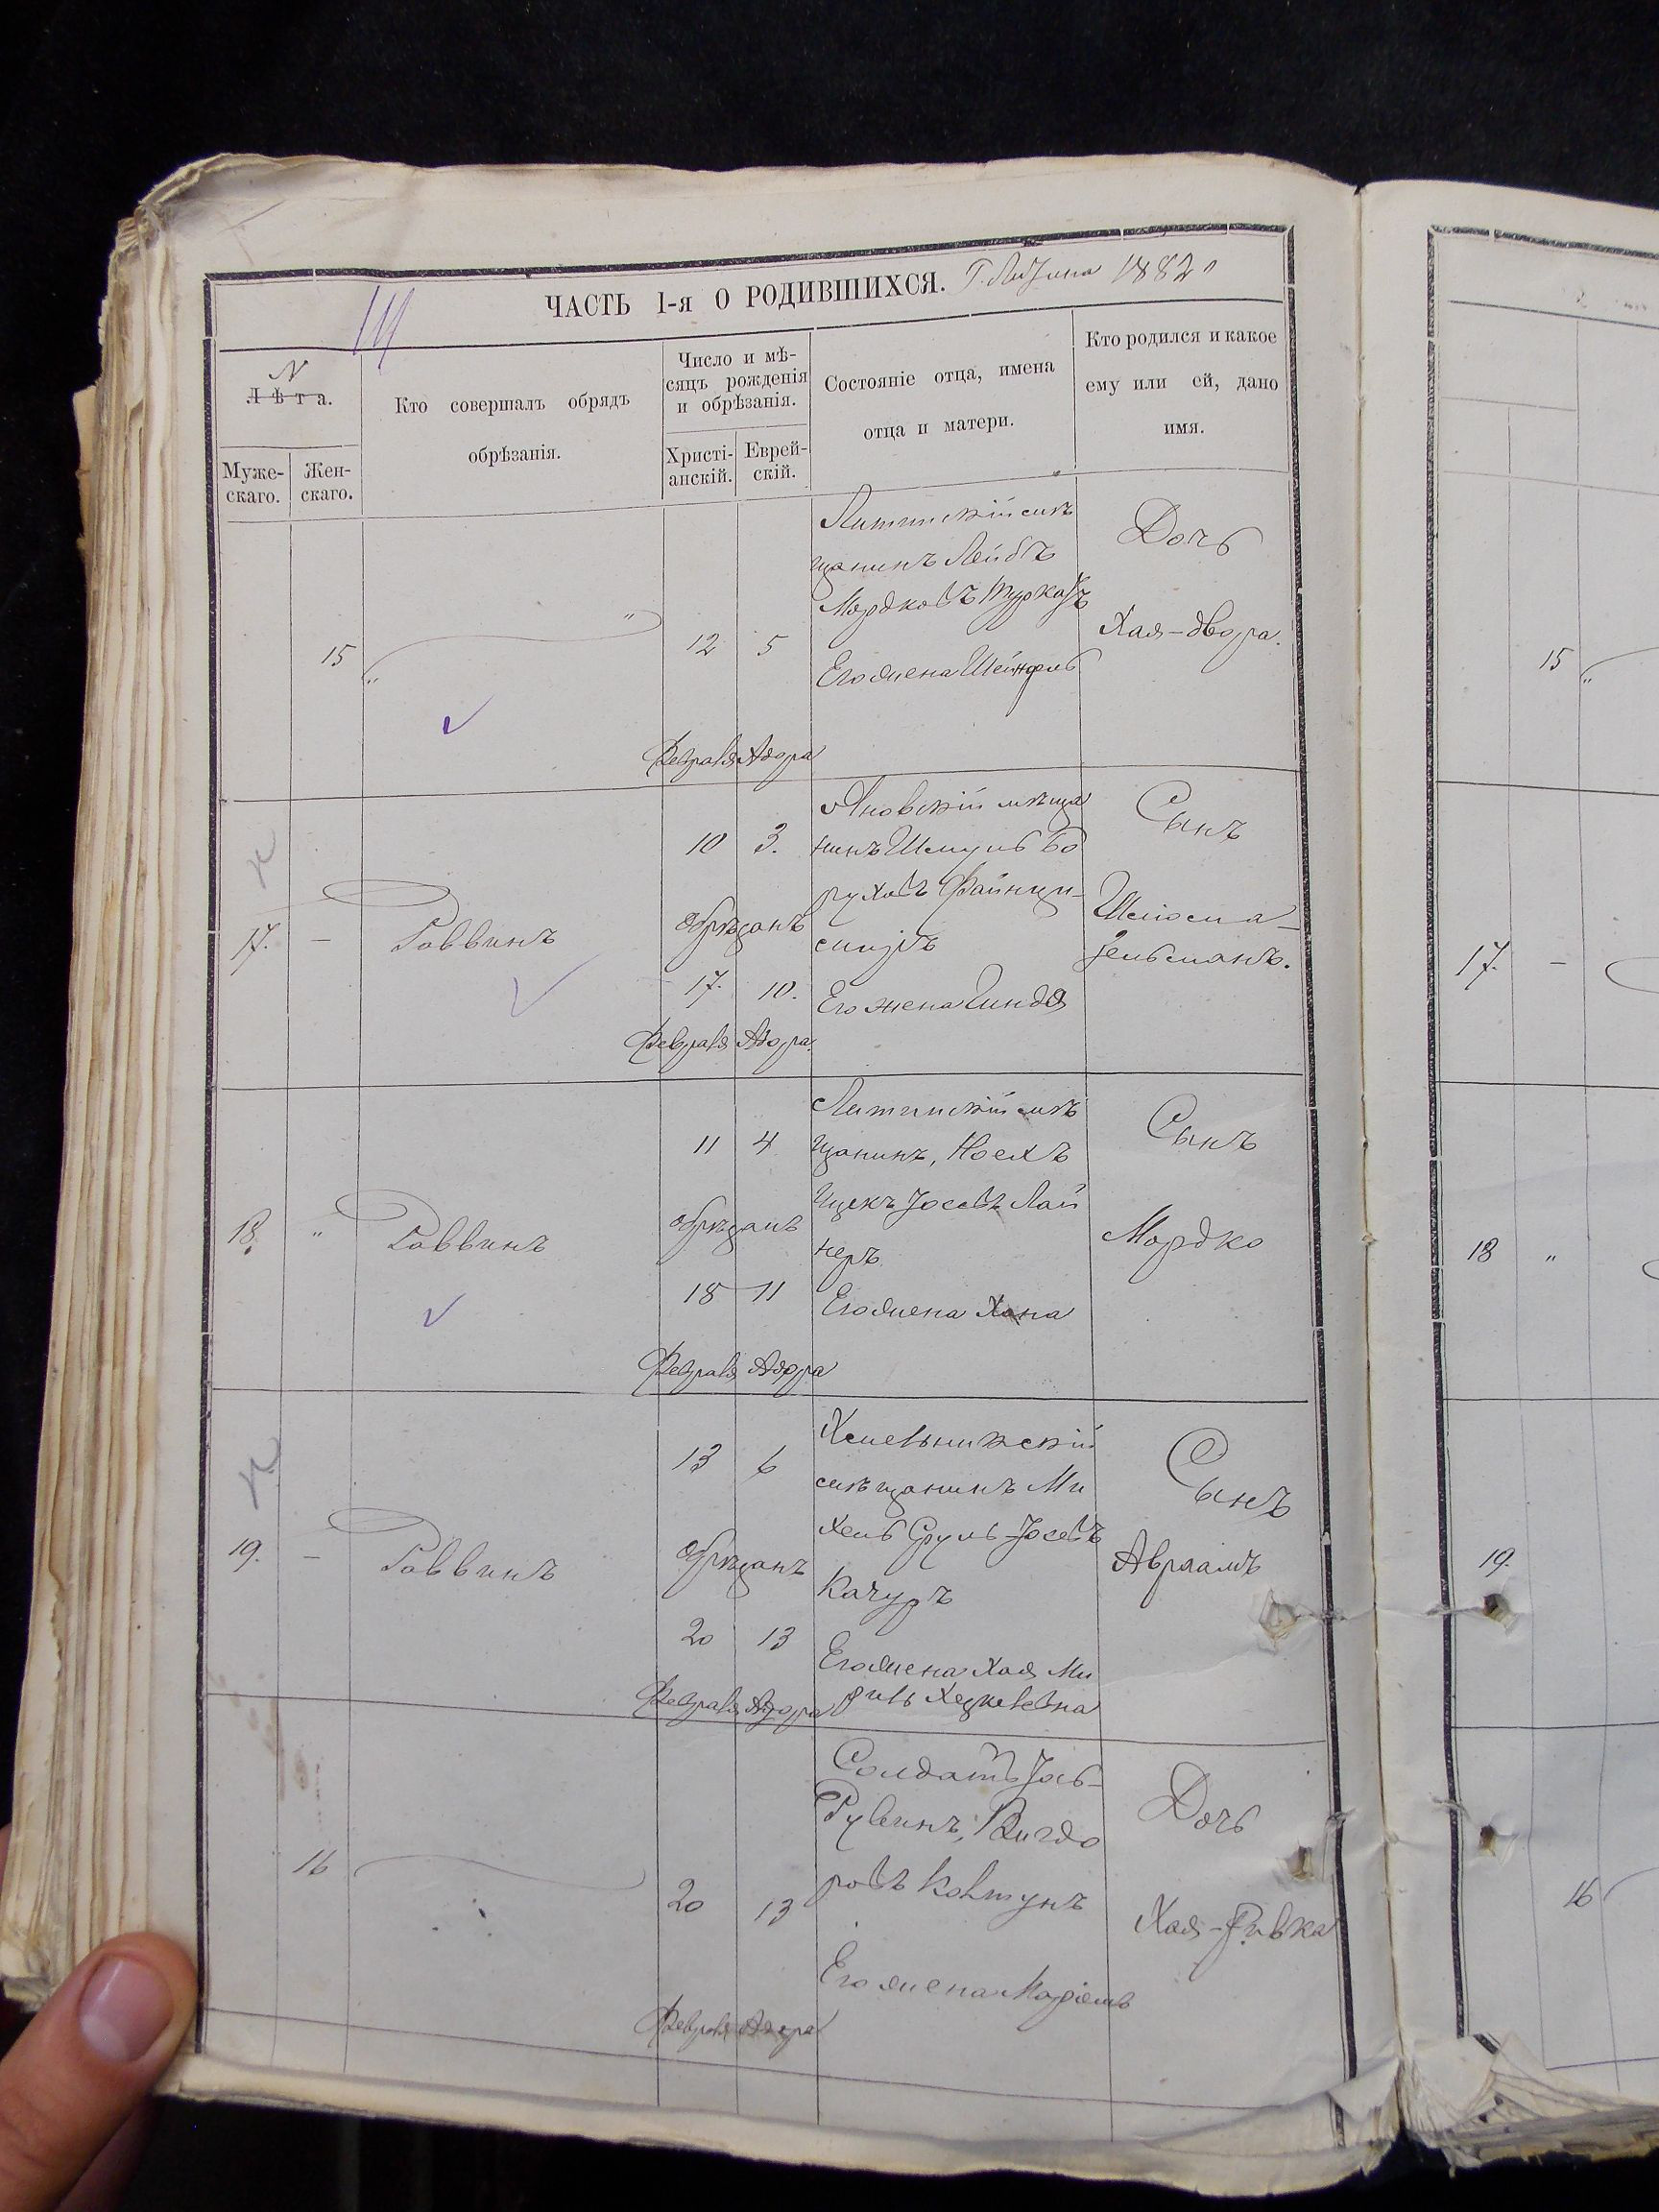 ЧАСТЬ I-я О РОДИВШИХСЯ. Г. Литина 1882 г
N
Лѣта.
Муже-
скаго.
Жен-
скаго.
Кто совершалъ обрядъ
обрѣзанія.
Число и мѣ-
сяцъ рожденія
и обрѣзанія.
Христі-
анскій.
Еврей-
скій.
Состояніе отца, имена
отца и матери.
Кто родился и какое
ему или ей, дано
имя.
15
12 5
Февраля Адора
Литинскій мѣ
щанинъ Лейбъ
Мордковъ
Его жена Шейндль
Дочь
Хая-двора.
15
17. –
Раввинъ
10 3.
Обрѣзанъ
17. 10.
Февраля Адора.
Яновскій мѣща
нинъ Шмуль Бо
руховъ Файнци-
Его жена Гиндя
Сынъ
Шлиома-
Зельманъ.
17. –
18. "
Раввинъ
11 4
Обрѣзанъ
18 11
Февраля Адора
Литинскій мѣ
щанинъ, Ноехъ
Ицекъ Іосевъ Лай
неръ
Его жена Хана
Сынъ
Мордко
18 "
19. –
Раввинъ
13 6
Обрѣзанъ
20 13
Февраля Адора
Хмельникскій
мѣщанинъ Ми
хель Сруль Іосевъ
Качуръ
Его жена Хая Ми
рель Хецкелевна
Сынъ
Авраамъ
19.
16
20 13
Февраля Адора
Солдатъ Іось-
Рувинъ, Вигдо
ровъ Колтунъ
Его жена Маріемъ
Дочь
Хая-Ривка
16